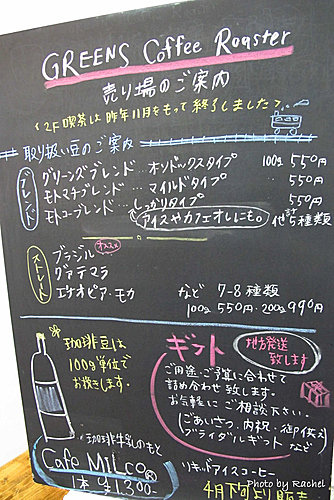 GREENS Coffee Roaster
売り場のご案内
2F喫茶は昨年11月をもって終了しました
取り扱い豆のご案内
ブレンド
グリーンズブレンド … オソドックスタイプ 100g 550円
モトマチブレンド … マイルドタイプ 〃 550円
モトコーブレンド … しっかりタイプ 〃 550円
アイスやカフェオレにも。 他計5種類
ストレート
ブラジル オススメ
グァテマラ
エチオピア・モカ など 7-8種類
100g 550円・200g 990円
珈琲豆は
100g単位で
お挽きします。
ギフト 地方発送致します
ご用途・ご予算に合わせて
詰め合わせ致します。
お気軽にご相談下さい。
(ごあいさつ、内祝、御仏
ブライダルギフト など
珈琲牛乳のもと
Cafe MILCO®
1本 ¥1,300-
リキッドアイスコーヒー
4月下旬より販売
Photo by Rachel